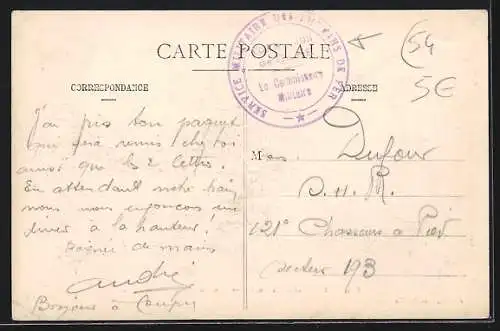 CARTE POSTALE
SERVICE MILITAIRE DES CHEMINS DE FER
Le Commissaire
Militaire
54
5€
CORRESPONDANCE
ADRESSE
J'ai pris ton paquet
qui sera remis chez toi
ainsi que les 2 lettres.
En attendant notre train
nous nous enfonçons un
diner à la hauteur!
Poignée de mains
André
Bonjour à
M
Dufour
121e Chasseurs à Pied
Secteur 193